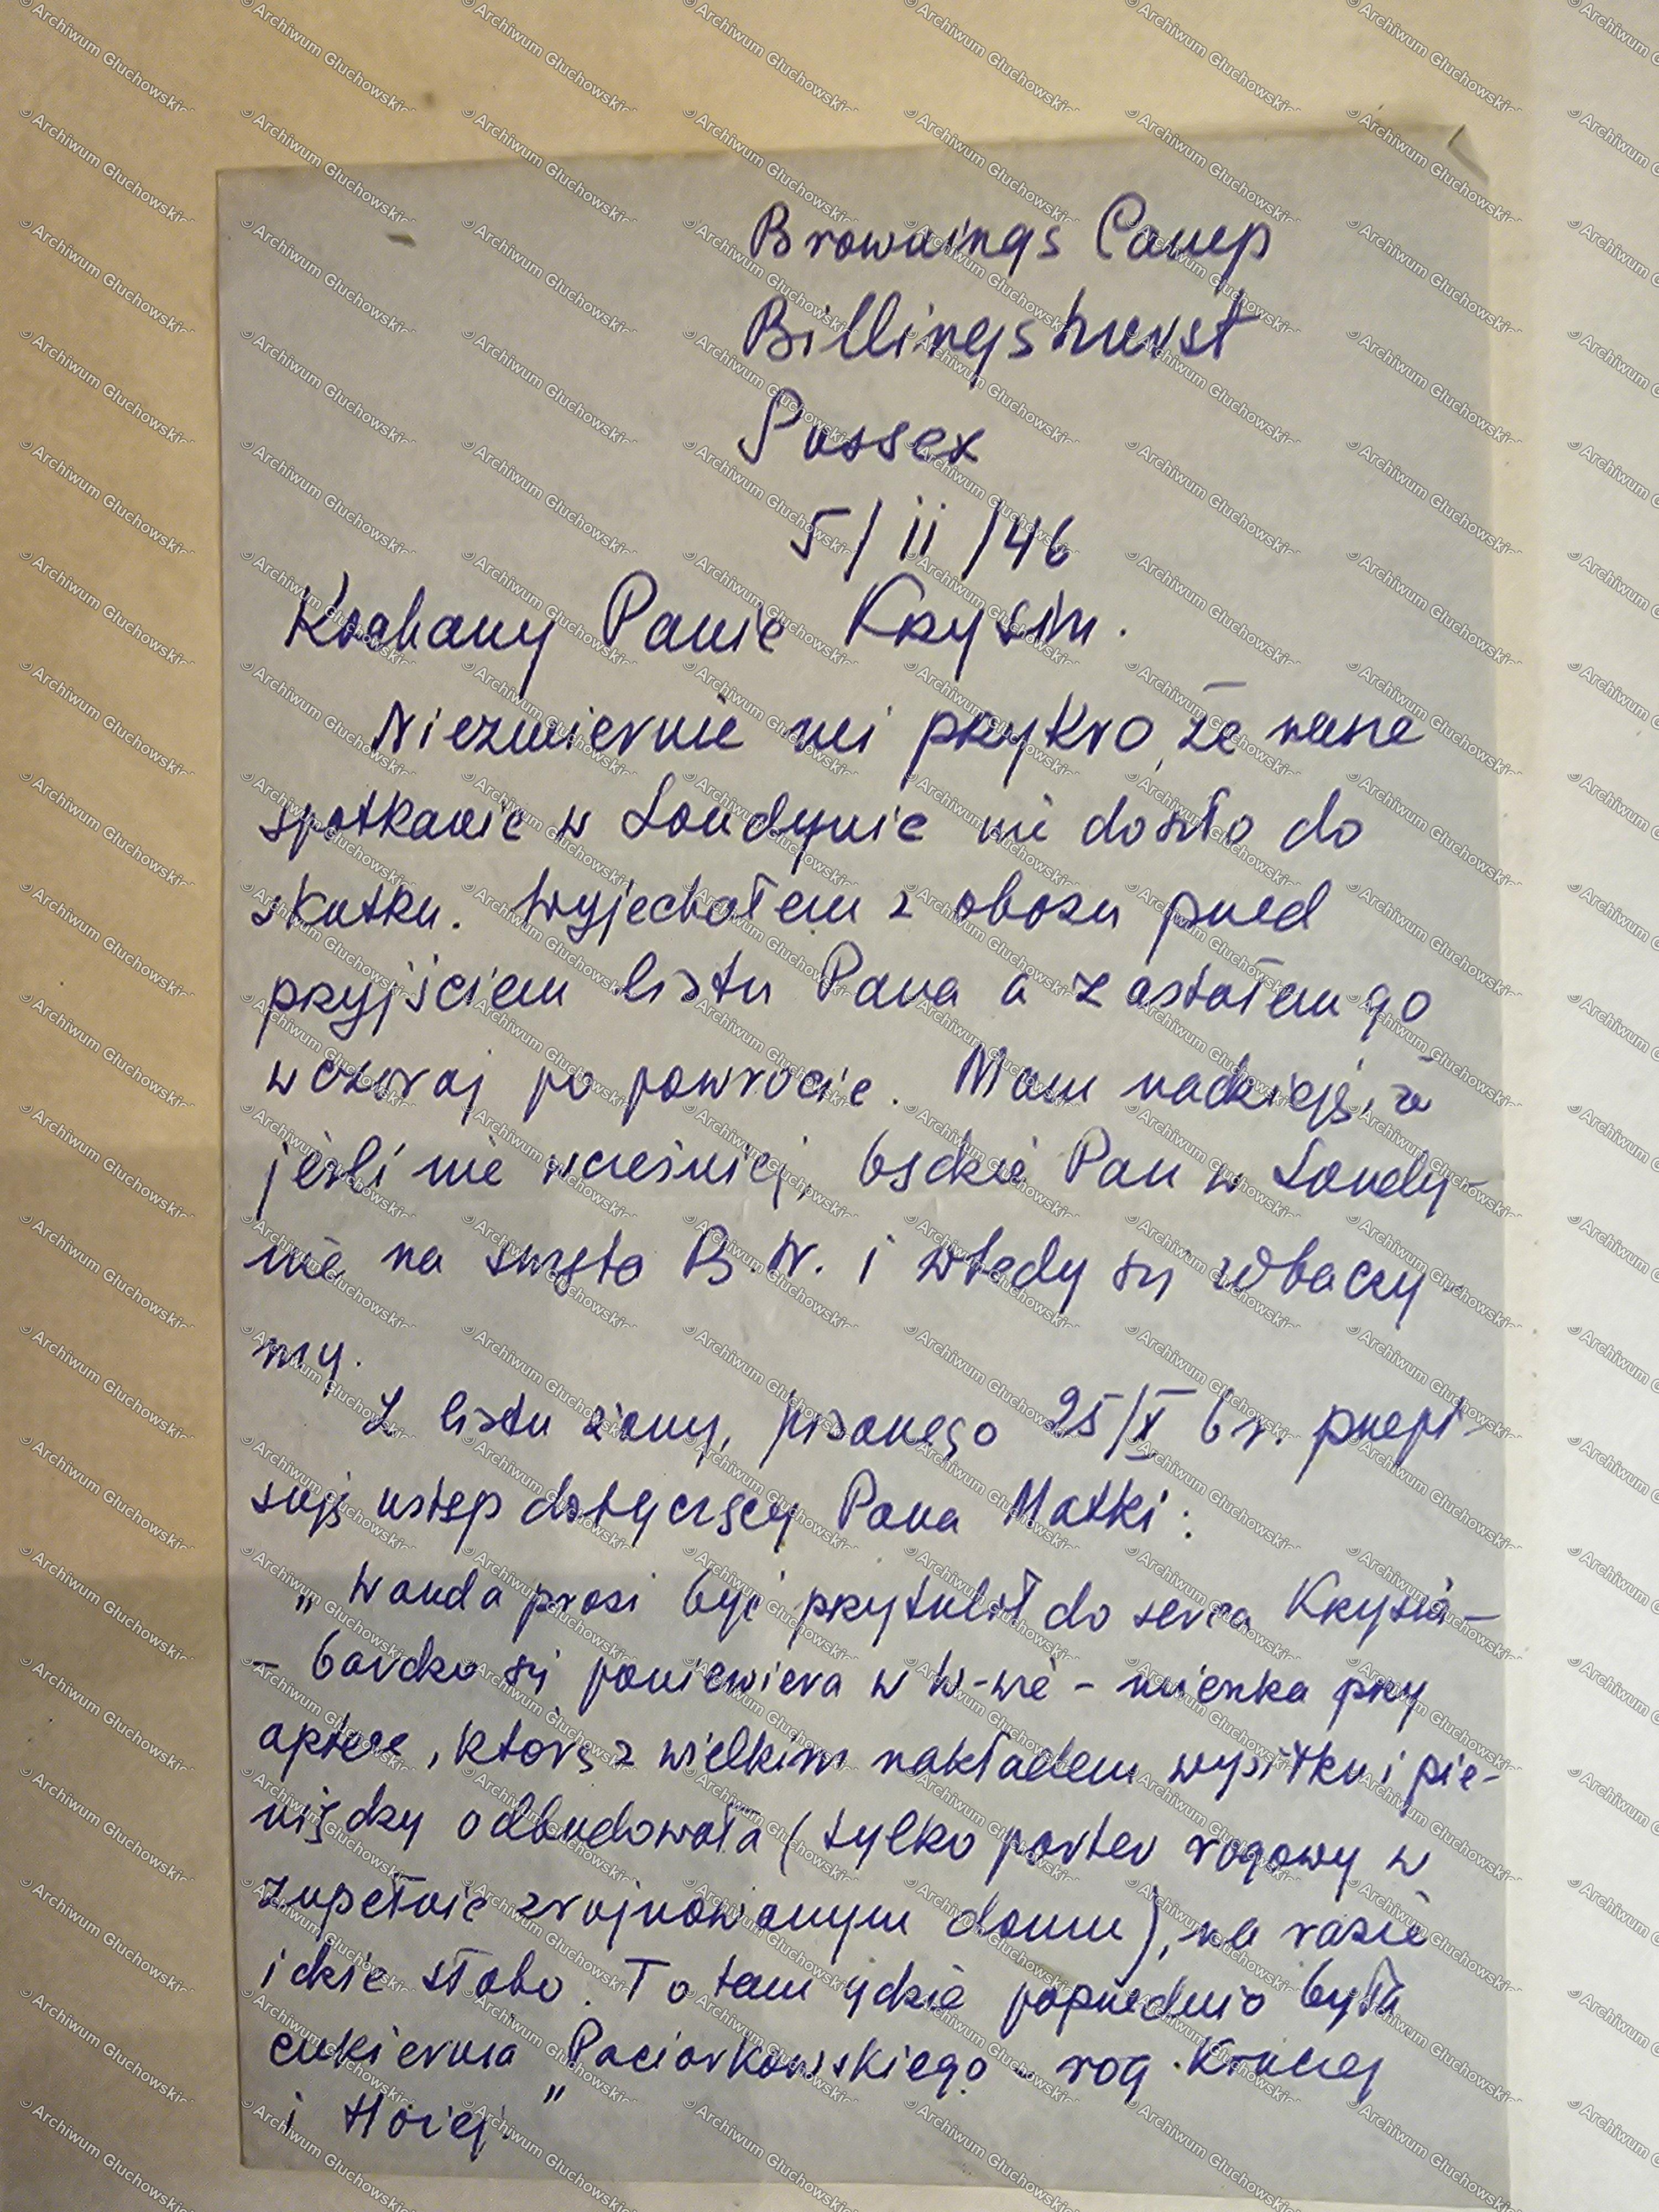 Brownings Camp
Billingshurst
Sussex
5/ii/46
Kochany Panie Krysiu.
Niezmiernie mi przykro, że nasze
spotkanie w Londynie nie doszło do
skutku. Wyjechałem z obozu przed
przyjściem listu Pana a zastałem go
wczoraj po powrocie. Mam nadzieję, że
jeśli nie wcześniej, będzie Pan w Londy-
nie na święta B.N. i wtedy się zobaczy-
my.
Z listu żony, pisanego 25/X b.r. przepi-
suję ustęp dotyczący Pana Matki:
„Wanda prosi byś przytulił do serca Krysia –
– bardzo się poniewiera w W-wie – mieszka przy
aptece, którą z wielkim nakładem wysiłku i pie-
niędzy odbudowała (tylko parter rogowy w
zupełnie zrujnowanym domu), na razie
idzie słabo. To tam gdzie poprzednio była
cukiernia Paciorkowskiego róg Kruczej
i Hożej."
© Archiwum Głuchowskich